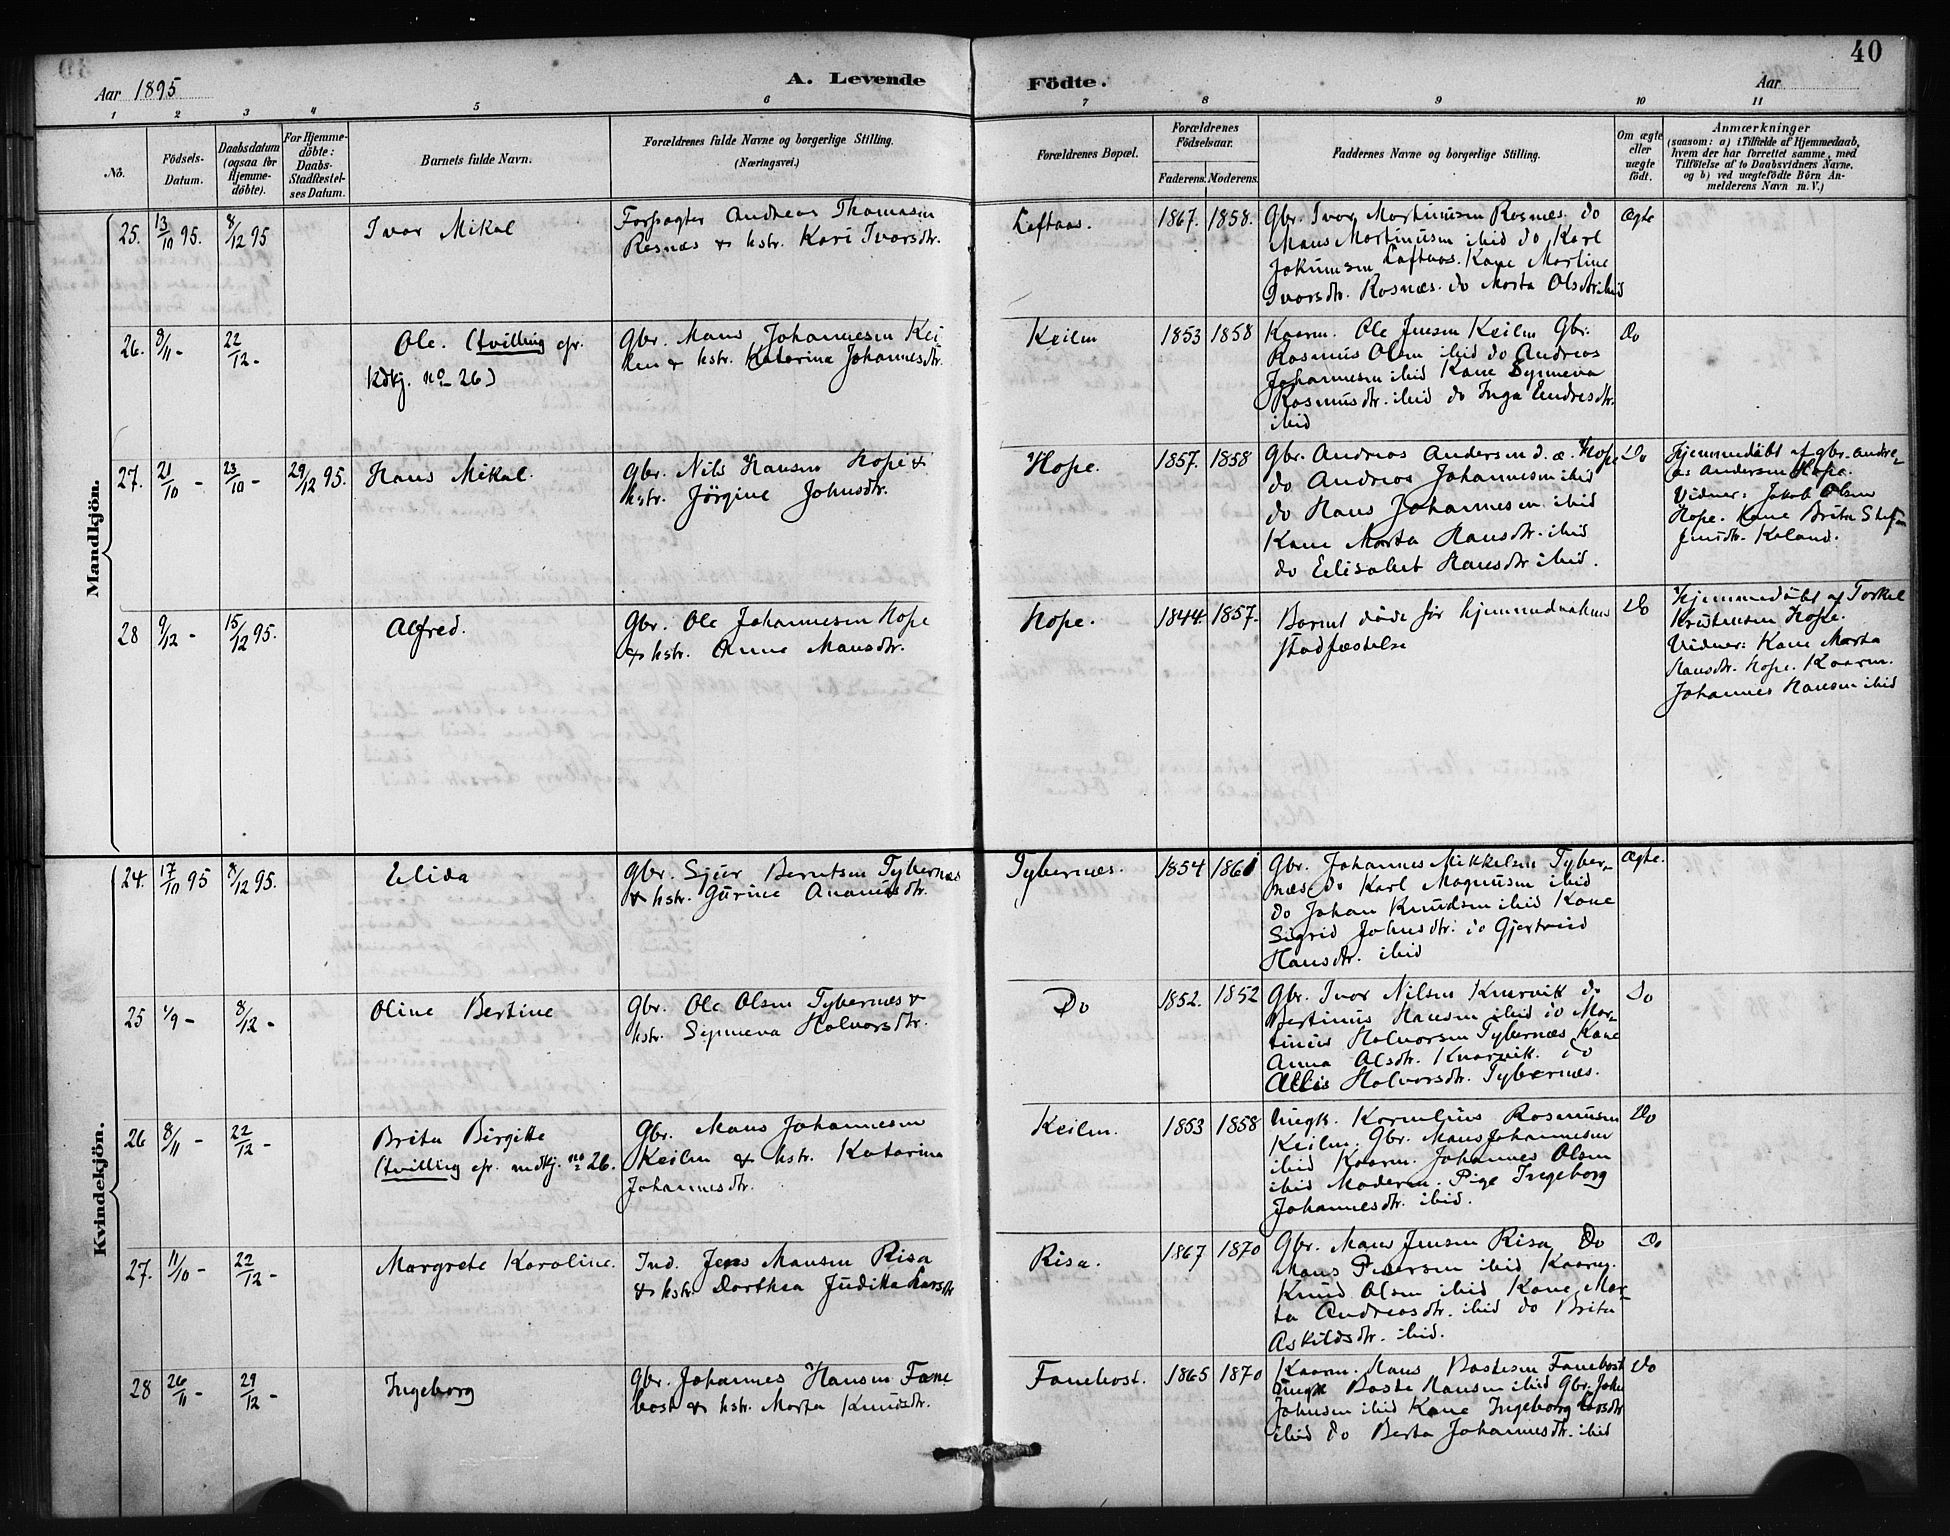 40
Aar 1895
A. Levende
Födte.
Aar
1 2 3 4 5 6 7 8 9 10 11
No.
Födsels-
Datum.
Daabsdatum
(ogsaa for
Hjemme-
döbte).
For Hjemme-
döbte:
Daabs-
Stadfæstel-
ses Datum.
Barnets fulde Navn.
Forældrenes fulde Navne og borgerlige Stilling.
(Næringsvei.)
Forældrenes Bopæl.
Forældrenes
Födselsaar.
Faderens. Moderens.
Faddernes Navne og borgerlige Stilling.
Om ægte
eller
uægte
födt.
Anmærkninger
(saasom: a) i Tilfælde af Hjemmedaab,
hvem der har forrettet samme, med
Tilföielse af to Daabsvidners Navne.
og b) ved uægtefödte Börn An-
melderens Navn m. V.)
Mandkjön.
25. 13/10 95. 8/12 95
Ivar Mikal
Forpagter Andreas Thomasen
Rosnæs & hstr. Kari Ivarsdtr.
Loftaas.
1867. 1858.
Gbr. Ivar Martinusen Rosnæs. do
Mans Martinusen ibid do Karl
Jokumsen Loftaas. Kone Martine
Ivarsdtr. Rosnæs. do Marta Olsdtr ibid
Ægte
26. 8/11 - 22/12 -
Ole. (tvilling cfr.
kvkj. no 26)
Gbr. Mans Johannesen Kei-
len & hstr. Katarina Johannesdtr.
Keilen
1853 1858
Kaarm. Ole Jensen Keilen Gbr.
Rasmus Olsen ibid do Andreas
Johannesen ibid Kone Synneva
Rasmusdtr. ibid do Inga Endresdtr.
ibid
Do
27. 21/10 - 23/10 - 29/12 95.
Hans Mikal.
Gbr. Nils Hansen Hope &
hstr. Jörgine Johnsdtr.
Hope.
1857. 1858
Gbr. Andreas Andersen d. æ. Hope
do Andreas Johannesen ibid
do Hans Johannesen ibid
Kone Marta Hansdtr. ibid
do Elisabet Hansdtr ibid.
Do
Hjemmedöbt af gbr. Andre-
as Andersen Hope.
Vidner: Jakob Olsen
Hope. Kone Brita Stef-
fensdtr. Kaland.
28 9/12 - 15/12 95.
Alfred.
Gbr. Ole Johannesen Hope
& hstr. Anna Mansdtr.
Hope.
1844. 1857.
Barnet döde för hjemmedaabens
stadfæstelse
Do
Hjemmedöbt af Torkel
Kristensen Hope.
Vidner: Kone Marta
Hansdtr. Hope. Kaarm.
Johannes Hansen ibid
Kvindekjön.
24. 17/10 95 8/12 95.
Elida
Gbr. Sjur Berntsen Tybernæs
& hstr. Gurine Ananiasdtr.
Tybernæs.
1854 1861
Gbr. Johannes Mikkelsen Tyber-
næs. do Karl Magnusen ibid
do Johan Knudsen ibid Kone
Sigrid Johnsdtr. do Gjertrud
Hansdtr. ibid
Ægte.
25 4/9 - 8/12 -
Oline Bertine
Gbr. Ole Olsen Tybernæs &
hstr. Synneva Halvorsdtr.
Do
1852. 1852
Gbr. Ivar Nilsen Knarvik do
Bertinus Hansen ibid do Mar-
tinus Halvorsen Tybernæs Kone
Anna Olsdtr. Knarvik. do
Allis Halvorsdtr. Tybernæs.
Do
26 8/11 - 22/12 -
Brita Birgitte
(tvilling cfr. mdkj. no 26.
Gbr. Mans Johannesen
Keilen & hstr. Katarina
Johannesdtr.
Keilen.
1853 1858
Ungk. Kornelius Rasmusen
Keilen. Gbr. Mans Johannesen
ibid Kaarm. Johannes Olsen
ibid Moderen. Pige Ingeborg
Johannesdtr. ibid.
Do
27. 11/10 - 22/12 -
Margrete Karoline.
Ind. Jens Mansen Risa
& hstr. Dorthea Juditta Larsdtr
Risa.
1867 1870
Gbr. Mans Jensen Risa Do
Mans Pedersen ibid Kaarm.
Knud Olsen ibid Kone Mar-
ta Andreasdtr. ibid do Brita
Askildsdtr. ibid.
Do
28 26/11 - 29/12 -
Ingeborg
Gbr. Johannes Hansen Fane-
bost & hstr. Marta Knudsdtr.
Fanebost.
1865 1870
Kaarm. Hans Bastesen Fanebost
Ungk Baste Hansen ibid Gbr. John
Johnsen ibid Kone Ingeborg Larsdtr
ibid do Berta Johannesdtr. ibid
Do